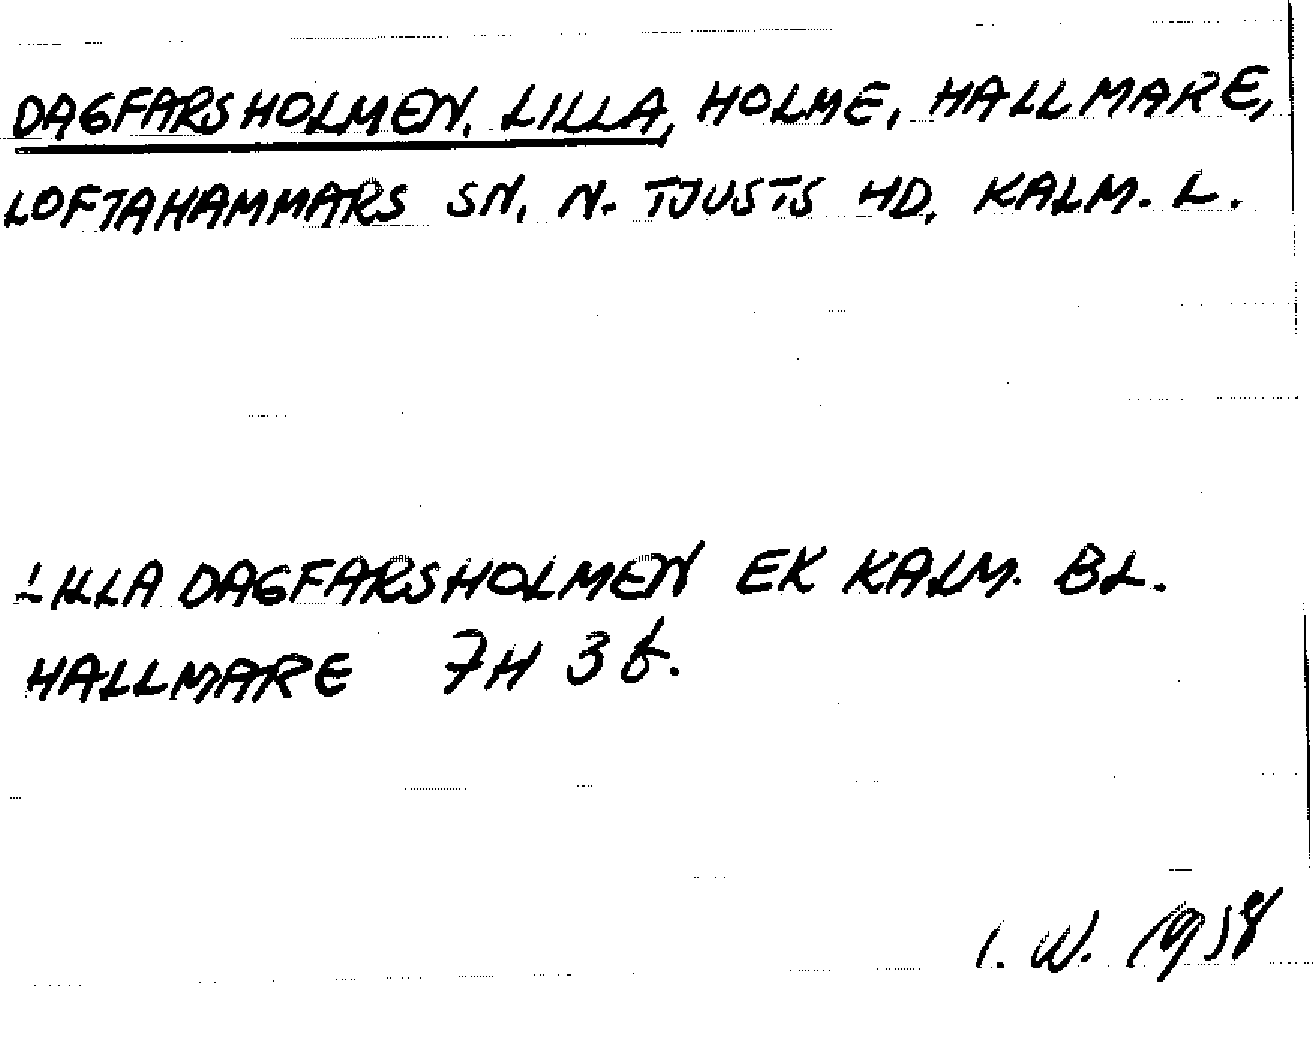 DAGFARSHOLMEN, LILLA, HOLME, HALLMARE,
LOFTAHAMMARS SN, N. TJUSTS HD, KALM. L.
LILLA DAGFARSHOLMEN EK KALM. BL.
HALLMARE 7H 3f.
I. W. 1958